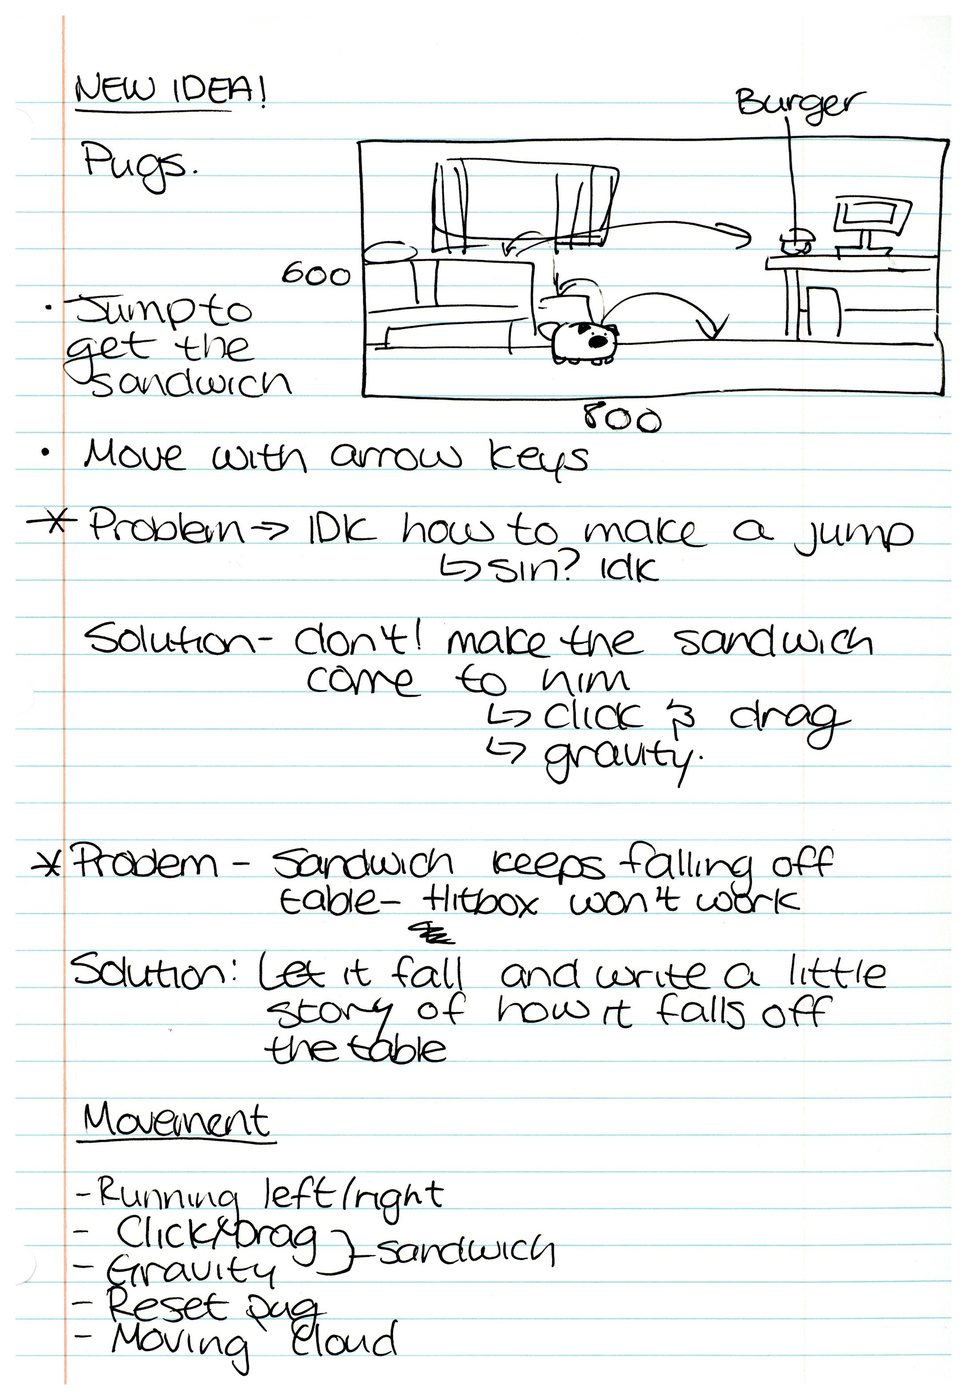 NEW IDEA!
Burger
Pugs.
600
• Jump to
get the
sandwich
800
• Move with arrow keys
* Problem → IDK how to make a jump
↳ sin? idk
Solution - don't! make the sandwich
come to him
↳ click & drag
↳ gravity.
* Problem - Sandwich keeps falling off
table - Hitbox won't work
Solution: Let it fall and write a little
story of how it falls off
the table
Movement
- Running left/right
- Click & Drag } sandwich
- Gravity
- Reset pug
- Moving cloud